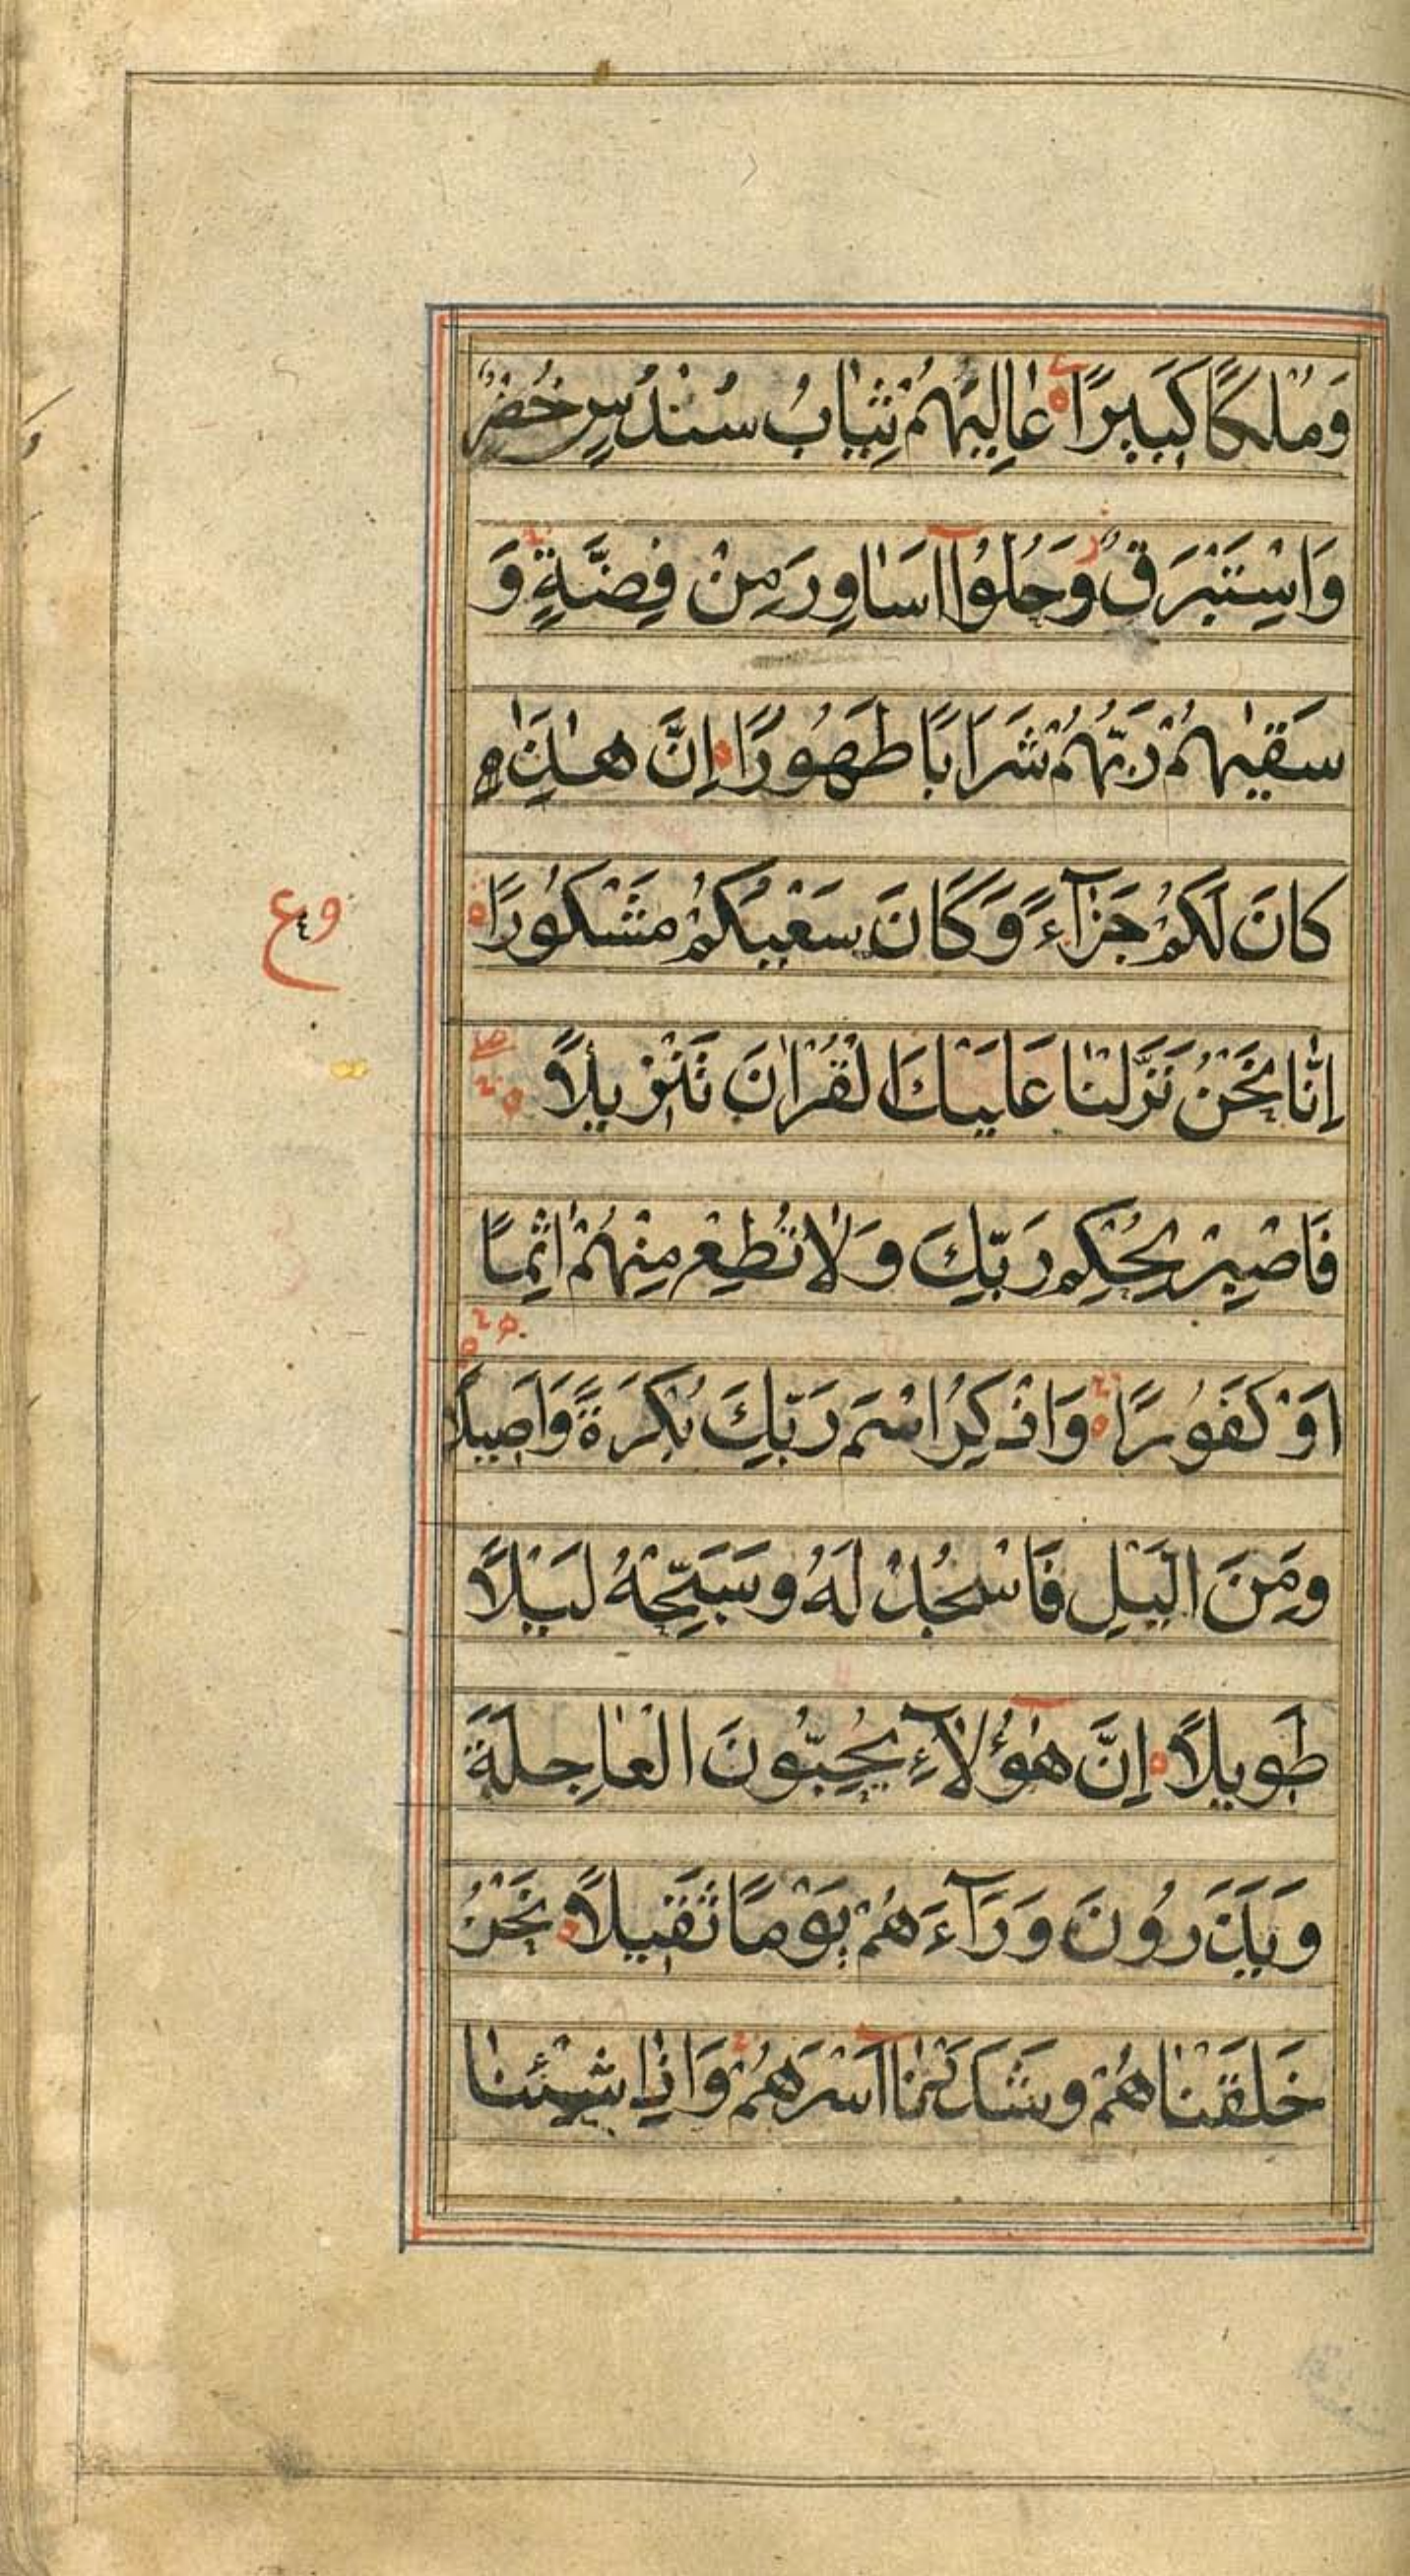 وَمُلْكًا كَبِيرًا عٰلِيَهُمْ ثِيَابُ سُنْدُسٍ خُضْرٌ
وَاِسْتَبْرَقٌ وَحُلُّوْا اَسَاوِرَ مِنْ فِضَّةٍ وَ
سَقٰىهُمْ رَبُّهُمْ شَرَابًا طَهُوْرًا اِنَّ هٰذَا
كَانَ لَكُمْ جَزَآءً وَكَانَ سَعْيُكُمْ مَشْكُوْرًا
وع
اِنَّا نَحْنُ نَزَّلْنَا عَلَيْكَ الْقُرْاٰنَ تَنْزِيْلًا
فَاصْبِرْ لِحُكْمِ رَبِّكَ وَلَا تُطِعْ مِنْهُمْ اٰثِمًا
اَوْ كَفُوْرًا وَاذْكُرِ اسْمَ رَبِّكَ بُكْرَةً وَاَصِيْلًا
وَمِنَ الَّيْلِ فَاسْجُدْ لَهُ وَسَبِّحْهُ لَيْلًا
طَوِيْلًا اِنَّ هٰؤُلَآءِ يُحِبُّوْنَ الْعَاجِلَةَ
وَيَذَرُوْنَ وَرَآءَهُمْ يَوْمًا ثَقِيْلًا نَحْنُ
خَلَقْنَاهُمْ وَشَدَدْنَا اَسْرَهُمْ وَاِذَا شِئْنَا